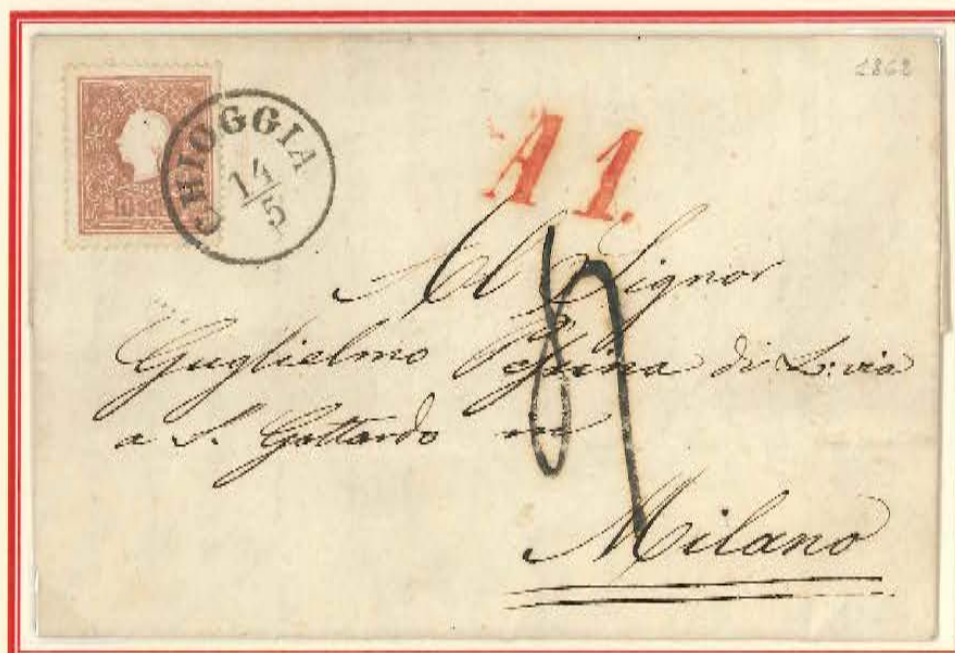 1862
CHIOGGIA
14
5
10
A 1.
Al Signor
Guglielmo di L: via
a S. Gottardo in
Milano